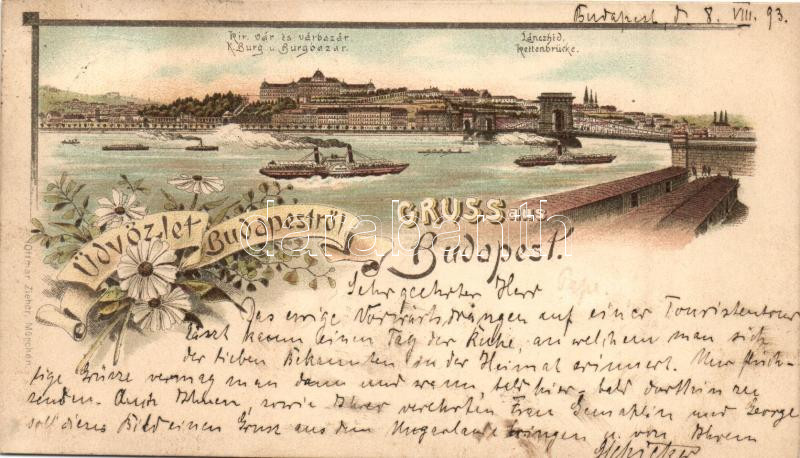 Budapest, d 8. VIII. 93.
Kir. vár és várbazár.
K. Burg u. Burgbazar.
Lánczhíd.
Kettenbrücke.
darabanth.com
Üdvözlet Budapestről
GRUSS aus
Budapest.
Ottmar Zieher, München.
Sehr geehrter Herr
Das ewige Vorwärtsdrängen auf einer Touristentour
lässt kaum einen Tag der Ruhe, an welchem man sich
der lieben Bekannten in der Heimat erinnert. Nur flüch-
tige Grüsse vermag man dann und wann, bald hier- bald dorthin zu
senden. Auch Ihnen, sowie Ihrer verehrten Frau Gemahlin und George
soll dieses Bild einen Gruss aus dem Ungarlande bringen u. von Ihrem